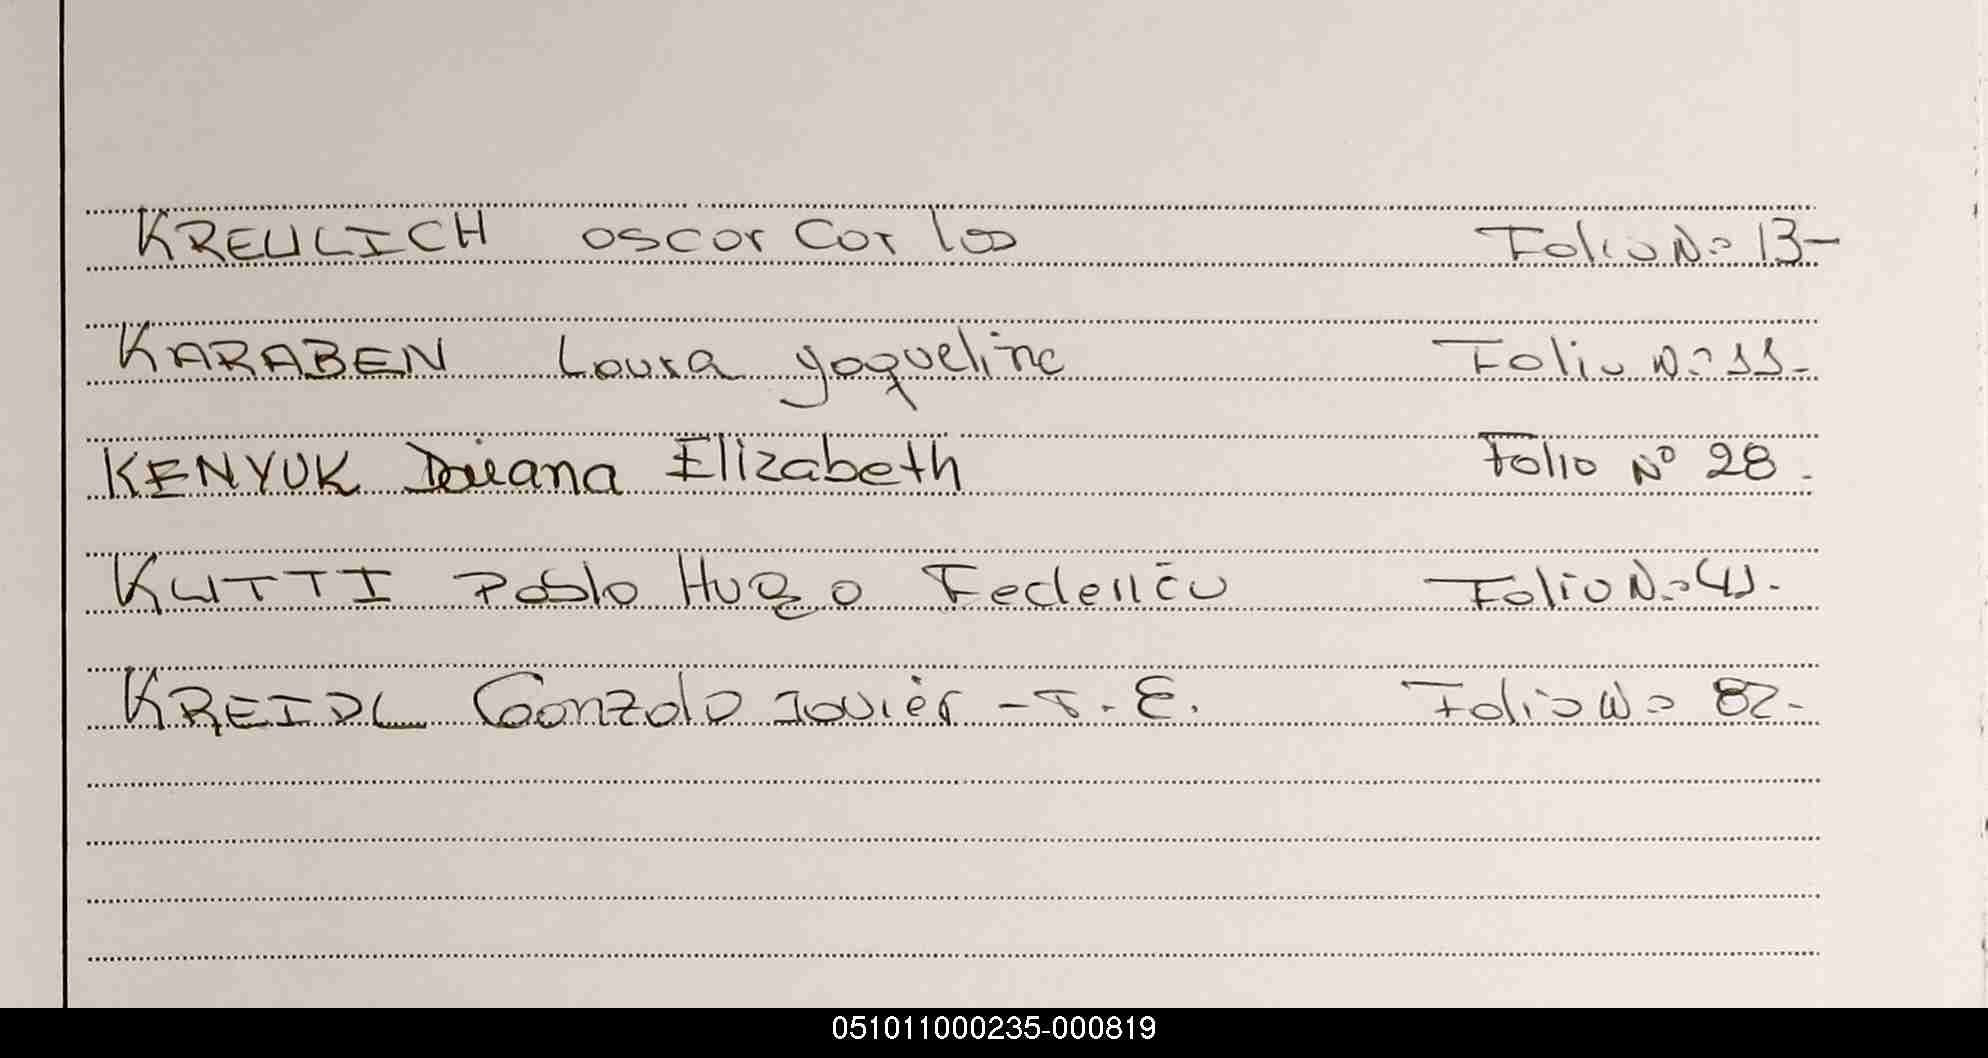 KREULICH Oscar Carlos Folio Nº 13-
KARABEN Laura Yaqueline Folio Nº 11-
KENYUK Daiana Elizabeth Folio Nº 28.
KUTTI Pablo Hugo Federico Folio Nº 41.
KREIDL Gonzalo Javier - T. E. Folio Nº 82-
051011000235-000819